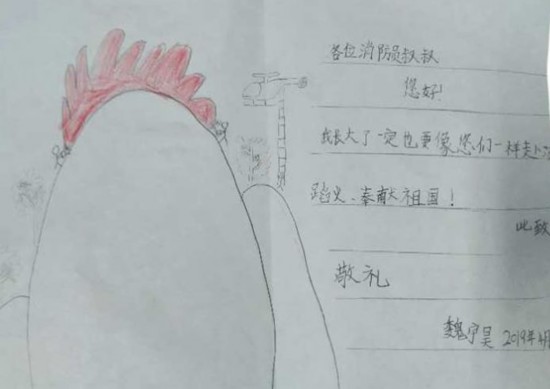 各位消防员叔叔
您好!
我长大了一定也更像您们一样走上
蹈火、奉献祖国!
此致
敬礼
魏宇昊 2019年4月